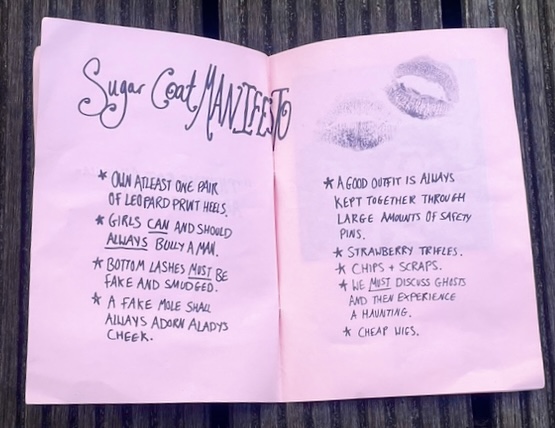 Sugar Coat MANIFESTO
* OWN ATLEAST ONE PAIR
OF LEOPARD PRINT HEELS.
* GIRLS CAN AND SHOULD
ALWAYS BULLY A MAN.
* BOTTOM LASHES MUST BE
FAKE AND SMUDGED.
* A FAKE MOLE SHALL
ALWAYS ADORN ALADYS
CHEEK.
* A GOOD OUTFIT IS ALWAYS
KEPT TOGETHER THROUGH
LARGE AMOUNTS OF SAFETY
PINS.
* STRAWBERRY TRIFLES.
* CHIPS + SCRAPS.
* WE MUST DISCUSS GHOSTS
AND THEN EXPERIENCE
A HAUNTING.
* CHEAP WIGS.